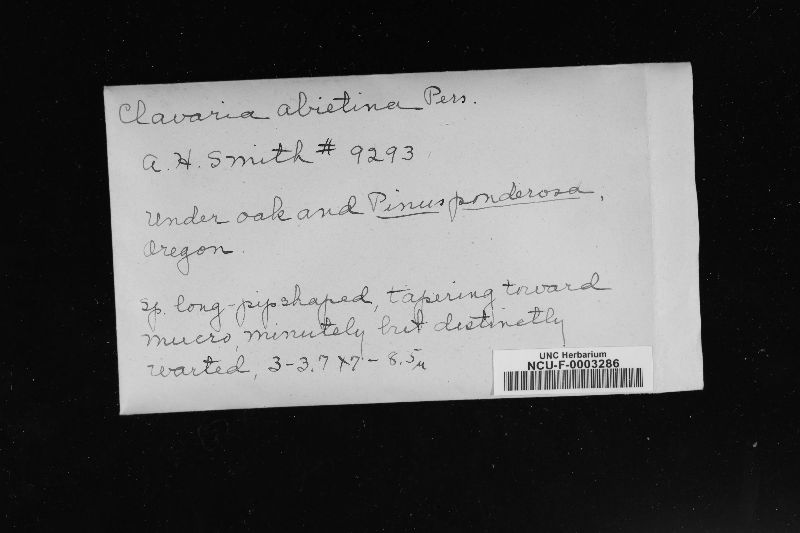 Clavaria abietina Pers.
A. H. Smith # 9293
Under oak and Pinus ponderosa,
Oregon.
sp. long-pip shaped, tapering toward
mucro, minutely but distinctly
warted, 3-3.7 x 7-8.5 µ
UNC Herbarium
NCU-F-0003286